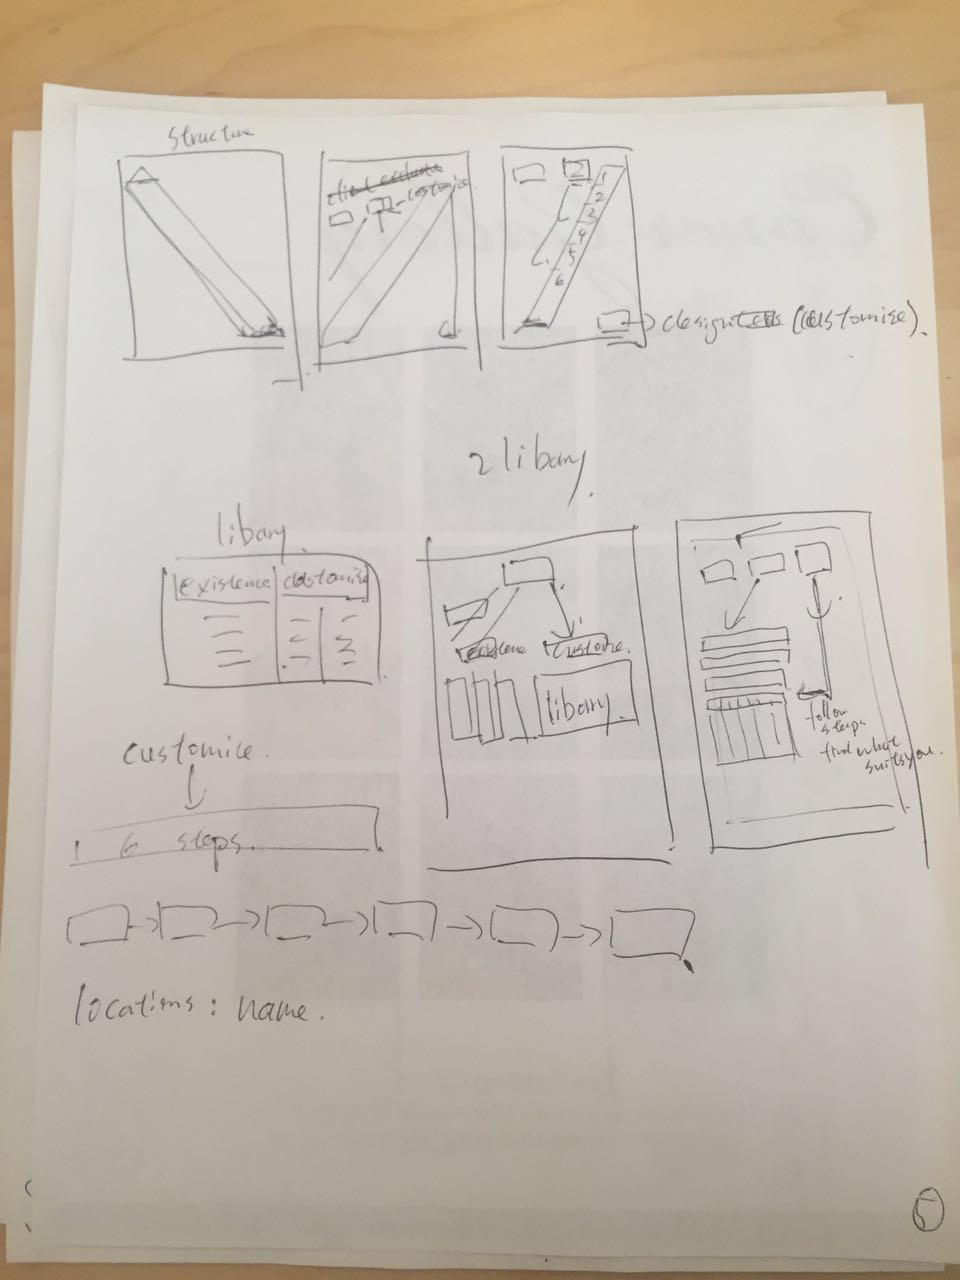 structure
customise
2
1
2
3
4
5
6
(customise).
2 libary
libary
existence customise
customise.
library
follow
steps
find what
suits you.
customise.
6 steps.
locations: name.
5